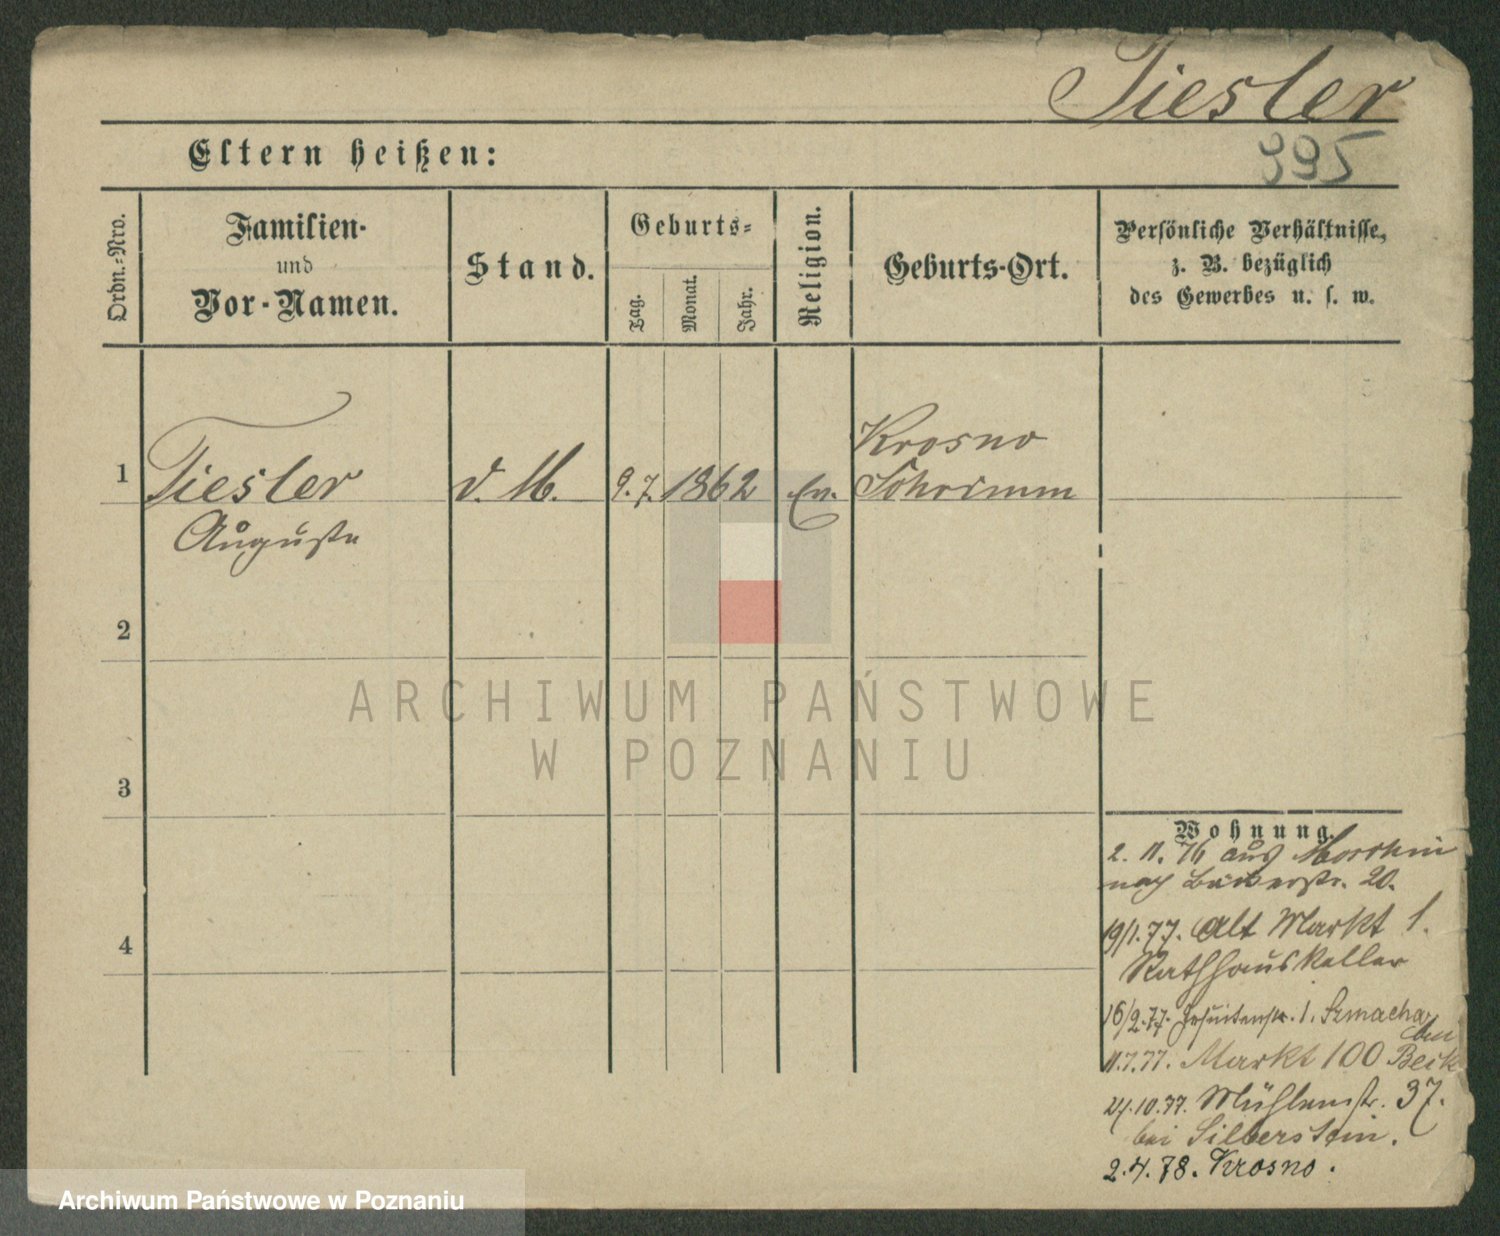 Tiesler
395
Eltern heißen:
Ordn.-Nro.
Familien-
und
Vor-Namen.
Stand.
Geburts-
Tag.
Monat.
Jahr.
Religion.
Geburts-Ort.
Persönliche Verhältnisse,
z. B. bezüglich
des Gewerbes u. s. w.
1
Tiesler
Auguste
d. M.
9. 7. 1862
Ev.
Krosno
Schrimm
2
3
4
Wohnung.
2. 11. 76 aus
nach Bäckerstr. 20.
19/1. 77. Alt Markt 1.
Rathhauskeller
16/2. 77. Jesuitenstr. 1.
11.7.77. Markt 100
24.10.77. Mühlenstr. 37.
bei Silberstein.
2.4.78. Krosno.
ARCHIWUM PAŃSTWOWE
W POZNANIU
Archiwum Państwowe w Poznaniu